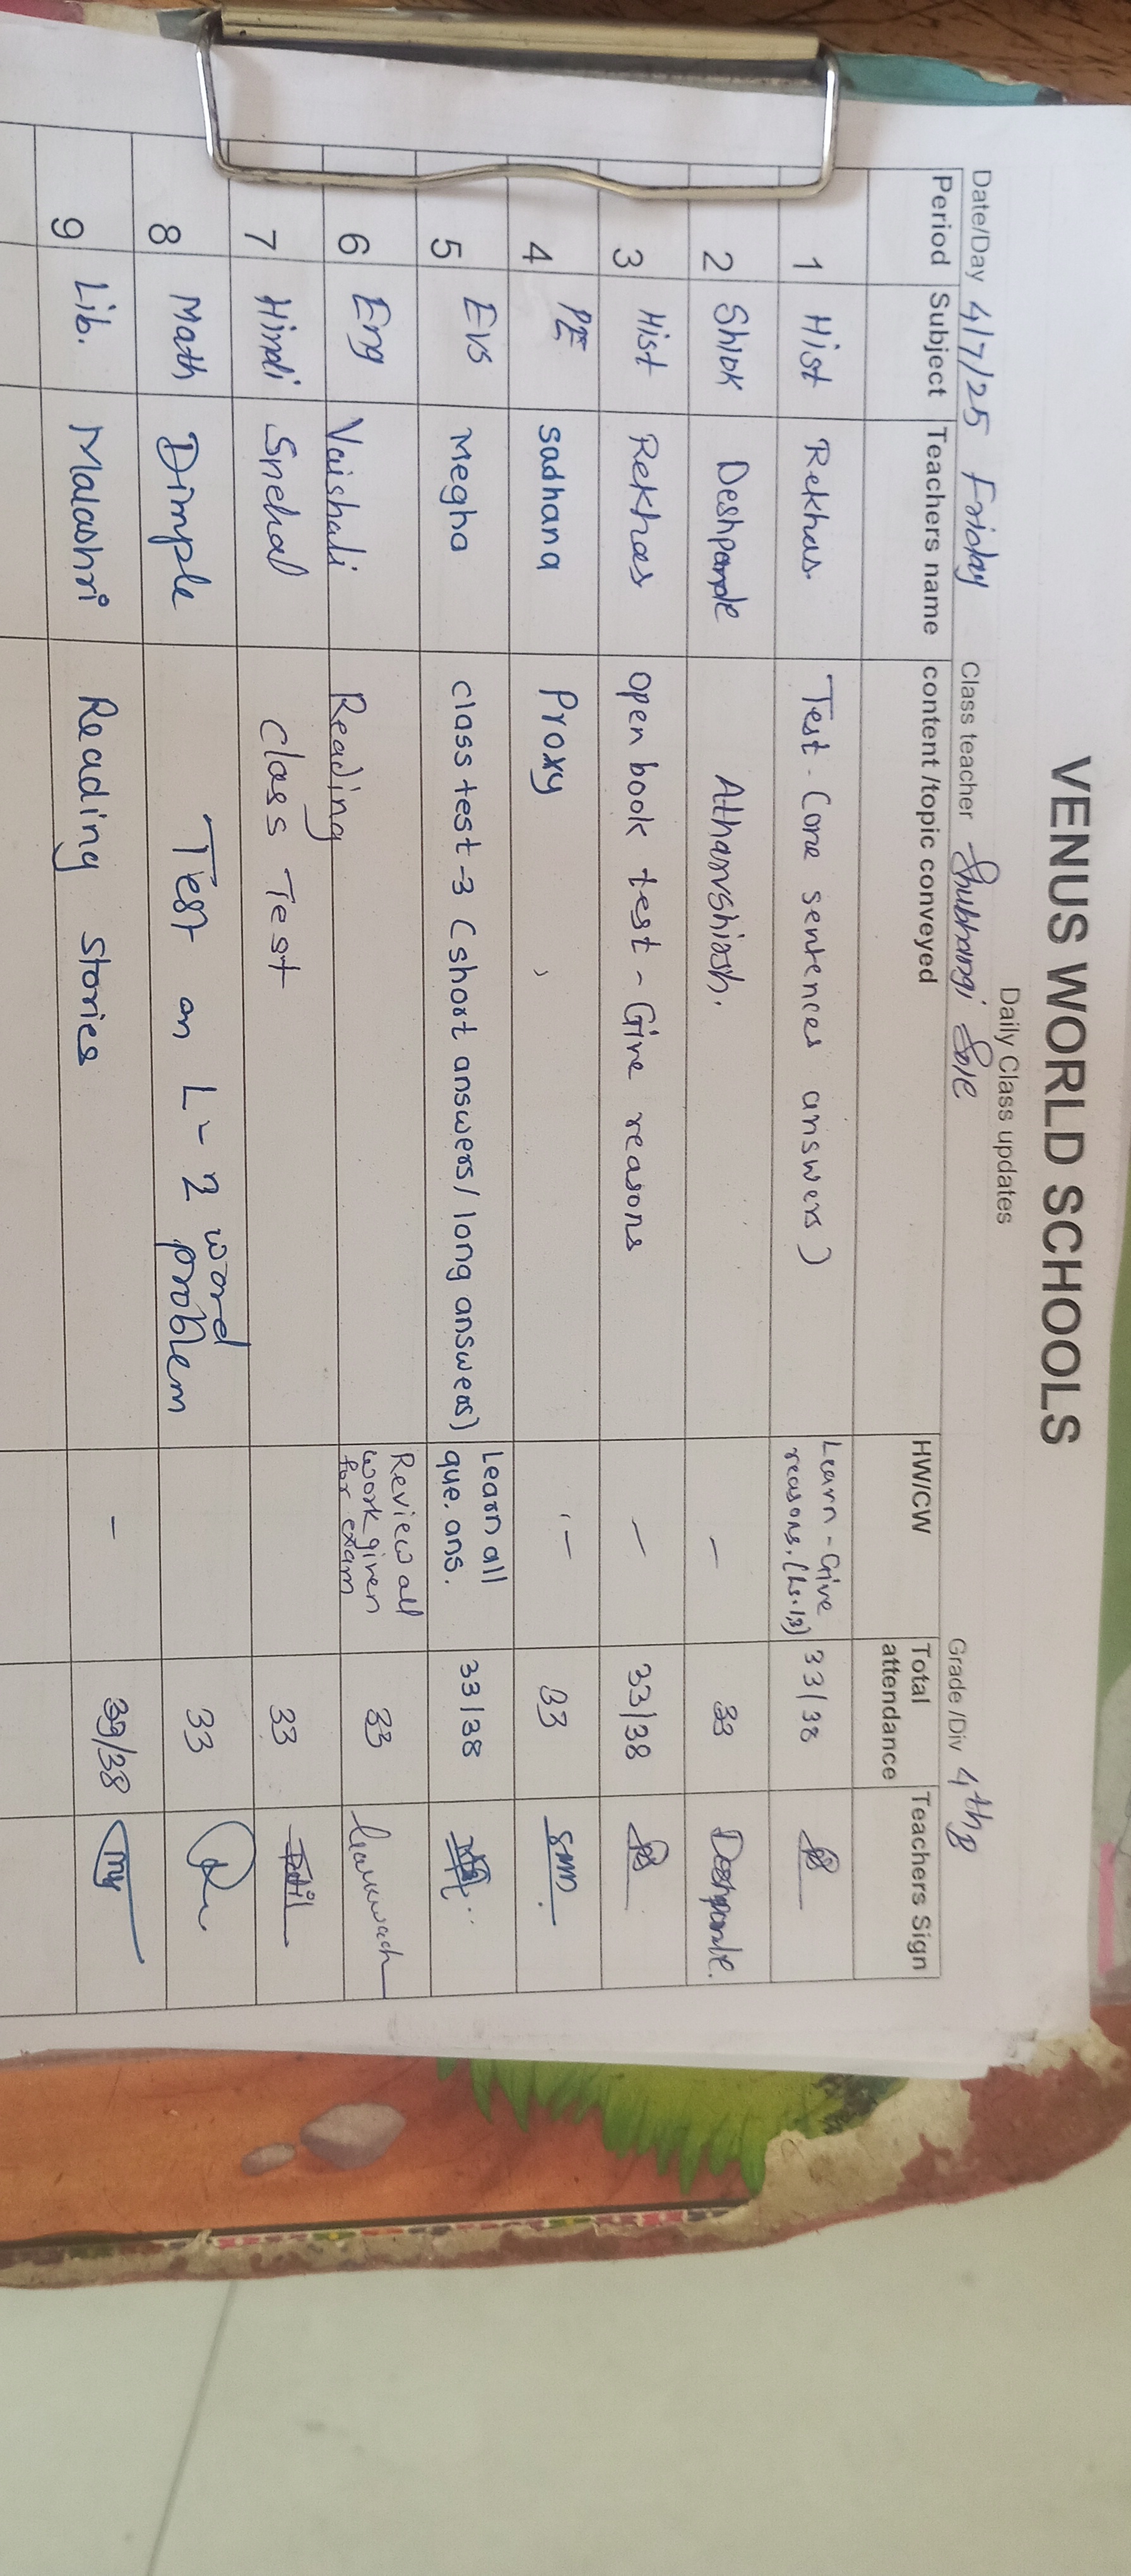 VENUS WORLD SCHOOLS
Daily Class updates
Date/Day 4/7/25 Friday Class teacher Shubhangi Sole Grade /Div 4th B
Period Subject Teachers name content /topic conveyed HW/CW Total attendance Teachers Sign
1 Hist Rekhas. Test - (one sentences answers) Learn - Give reasons. (Ls. 1,3) 33/38
2 Shlok Deshpande Atharvshirsh. - 33 Deshpande.
3 Hist Rekhas open book test - Give reasons - 33/38
4 PE sadhana Proxy - 33
5 EVS Megha class test-3 (short answers/long answers) Learn all que. ans. 33/38
6 Eng Vaishali Reading Review all work given for exam 33
7 Hindi Snehal Class Test 33
8 Math Dimple Test on L-2 word problem 33
9 Lib. Malashri Reading stories - 33/38